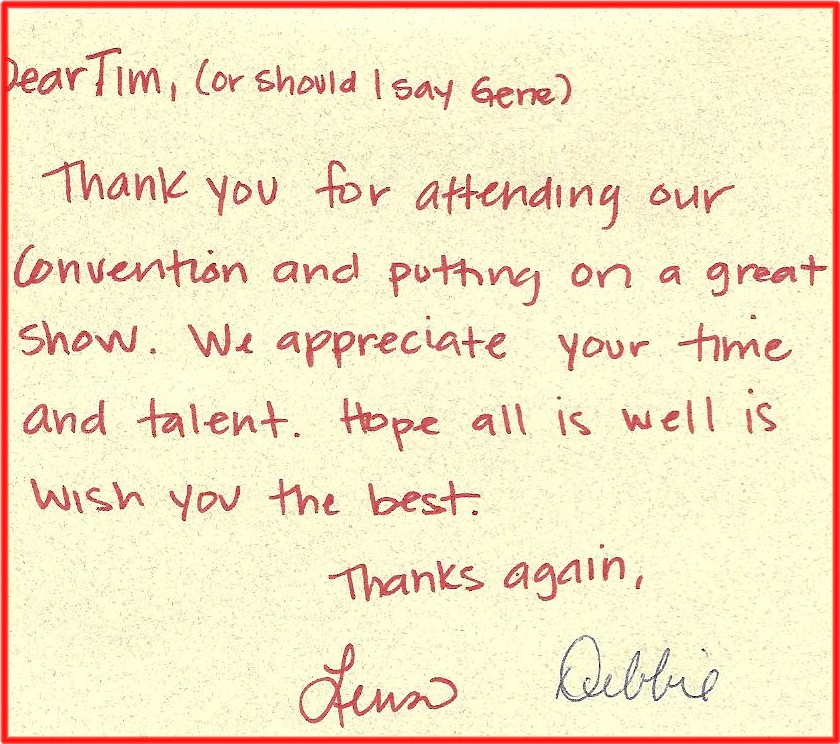 Dear Tim, (or should I say Gene)
Thank you for attending our
Convention and putting on a great
show. We appreciate your time
and talent. Hope all is well is
wish you the best.
Thanks again,
Debbie